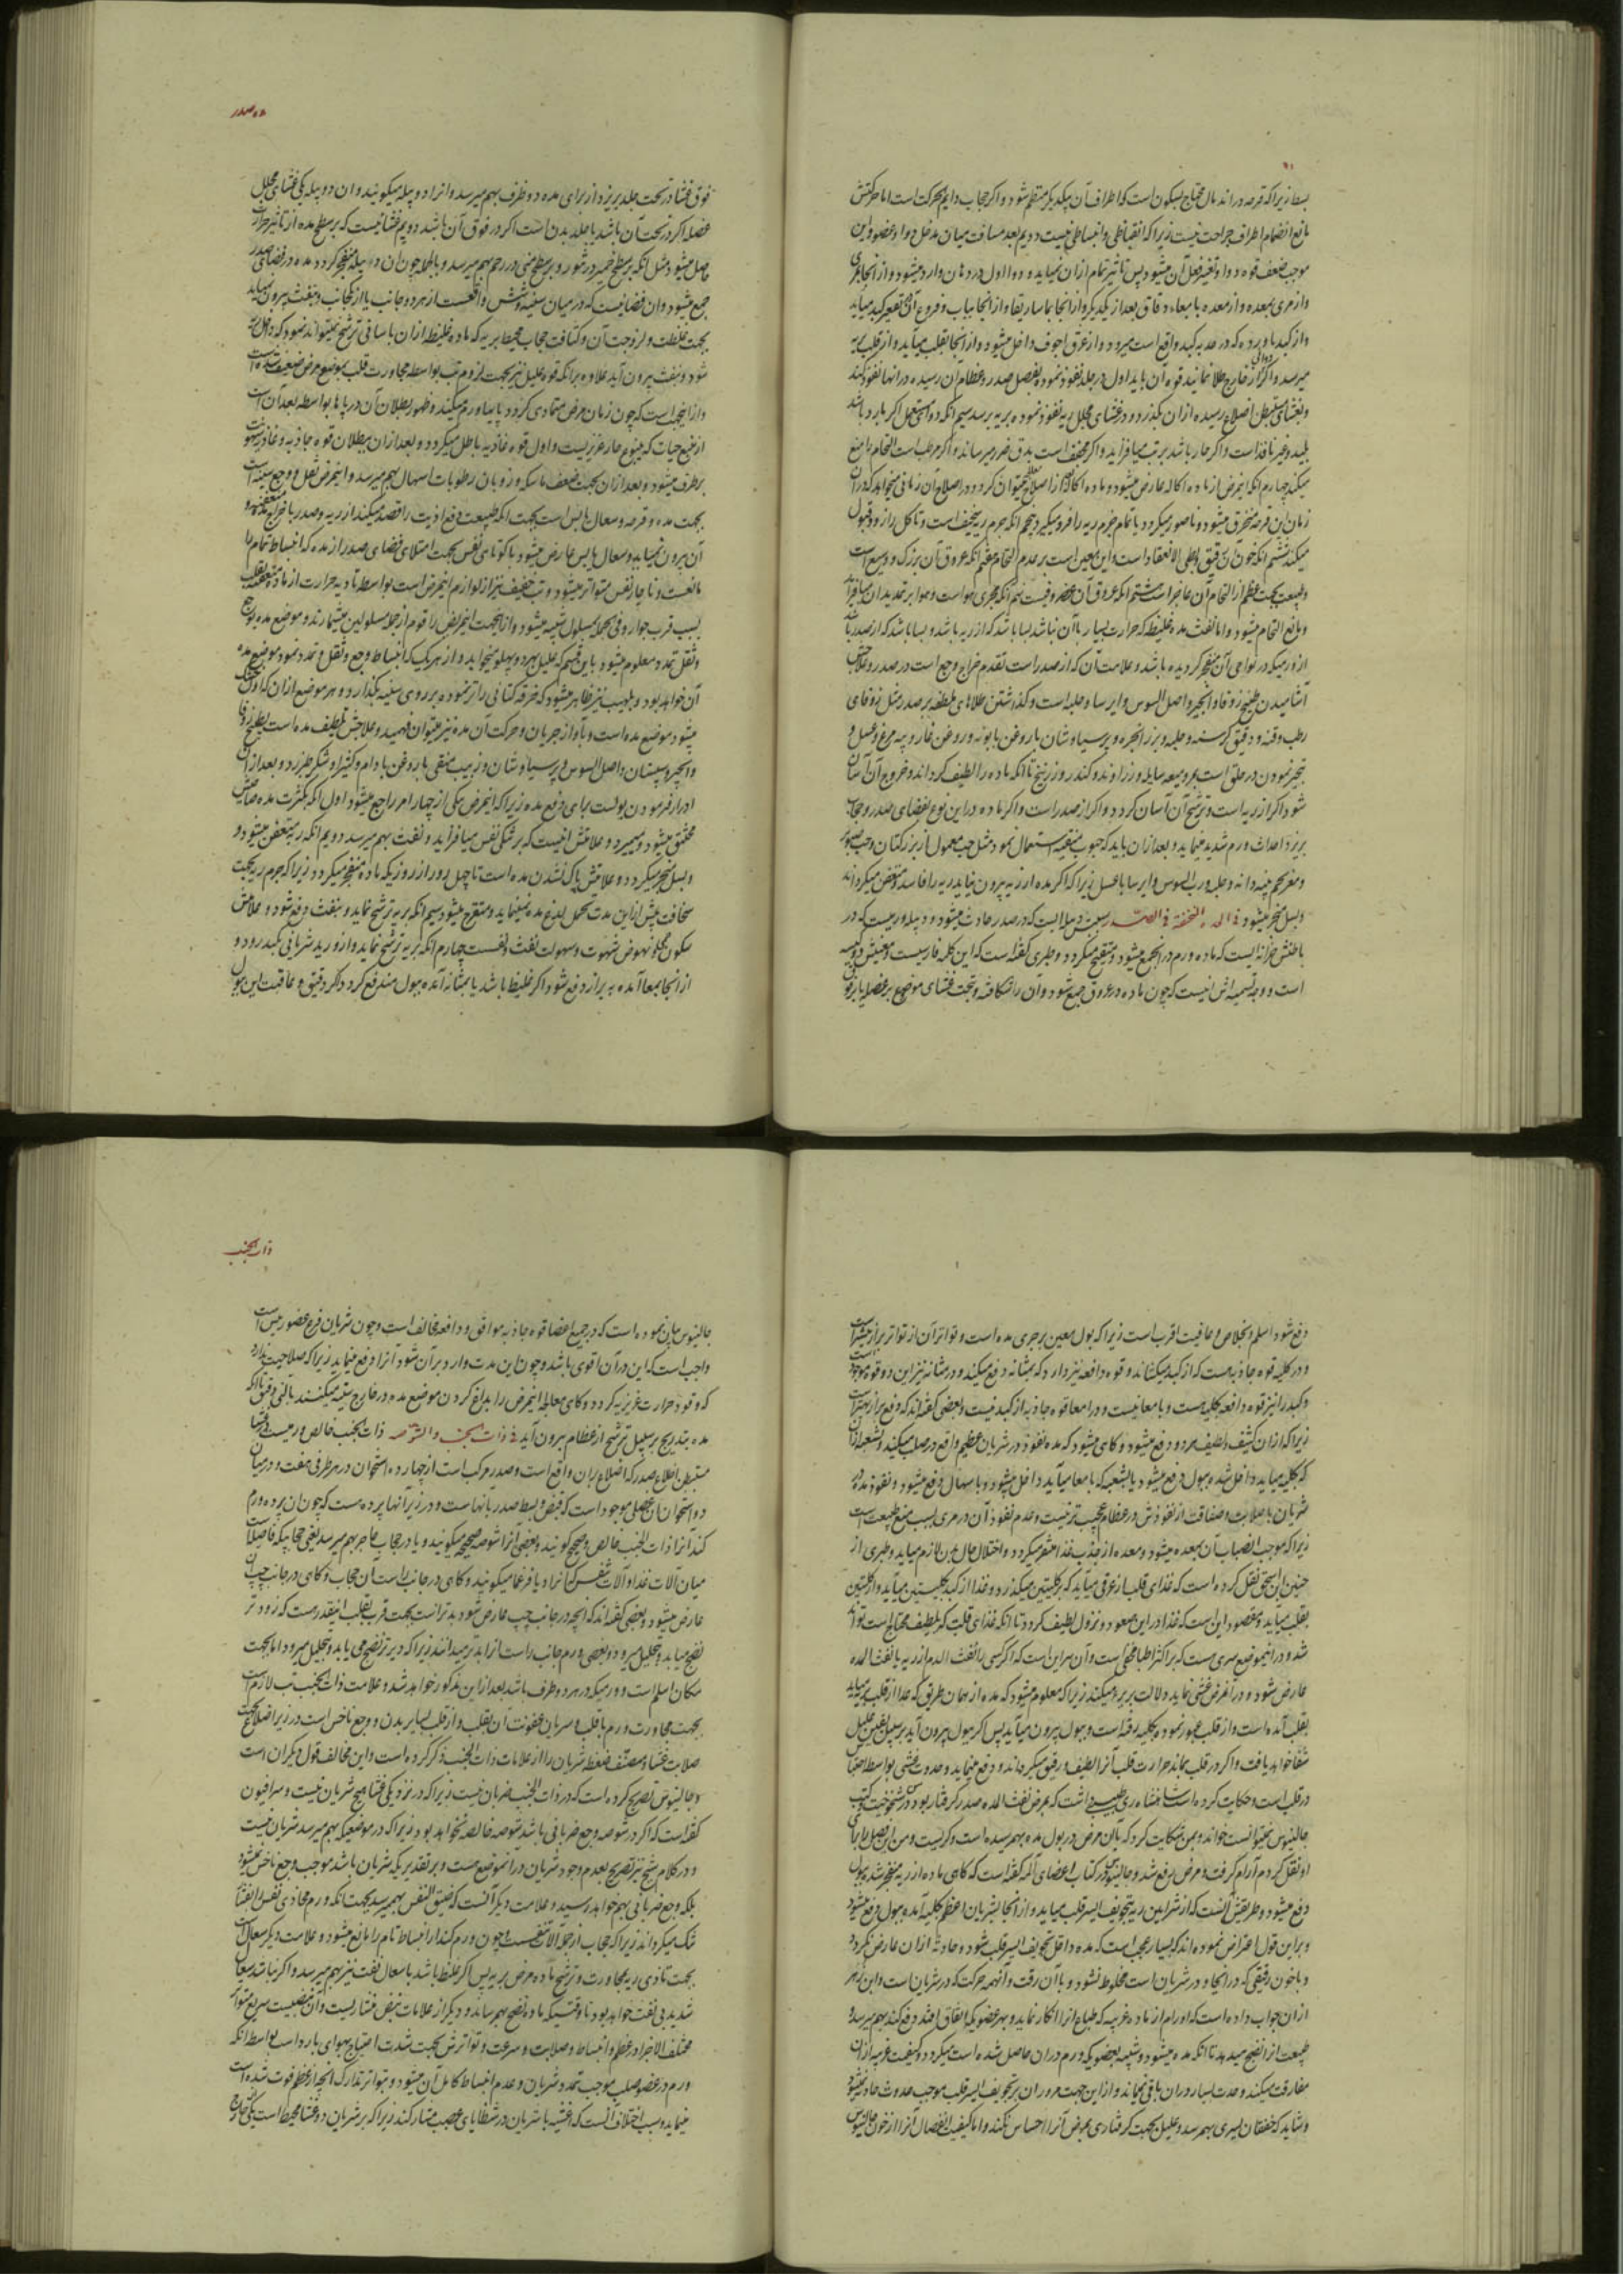 بسط زیرا که قرحه در اندمال محتاج بسکون است که اطراف آن بیکدیگر منظم شود و اگر حجاب دایم الحرکت است اما حرکتش
مانع انضمام اطراف جراحت نیست زیرا که انقباضی و انبساطی نیست دویم بعد مسافت میان مدخل دوا و عضو و این
موجب ضعف قوه دوا و تغیر فعل آن میشود پس تاثیر تمام از ان نمیاید و دوا اول در دهان وارد میشود و از انجا بمری
و از مری بمعده و از معده بامعاء دقاق بعد از یکدیگر و از انجا بماساریقا و از انجا بباب و فروع آن در تقعیر کبد میاید
و از کبد باورده که در حدبه کبد واقع است میرود و از عرق اجوف داخل میشود و از انجا بقلب میاید و از قلب بریه
میرسد و اگر از خارج طلا نمایند قوه آن باید اول در جلد نفوذ نموده بعضل صدر و عظام آن رسیده در انها نفوذ کند
و بغشای مستبطن اضلاع رسیده از ان بگذرد و در غشای مجلل ریه نفوذ نموده بریه برسد سیم انکه دوا مستعمل اگر بارد باشد
بلید و غیر نافذ است و اگر حار باشد بر تب میافزاید و اگر مجفف است بدق ضرر میرساند و اگر مرطب است التحام را منع
میکند چهارم انکه اینمرض از ماده اکاله عارض میشود و ماده اکال را اصلاح نمیتوان کرد و در اصلاح آن زمانی میخواهد که در ان
زمان این قرحه منخرق میشود و ناصور میگردد یا تمام جرم ریه را فرو میگیرد پنجم انکه جرم ریه سخیف است و تاکل را زود قبول
میکند ششم انکه خون آن رقیق بطی الانعقاد است و این معین است بر عدم التحام هفتم انکه عروق آن بزرک و وسیع است
و طبیعت بجهت عظم از التحام آن عاجز است هشتم انکه عروق آن غضروفیست نهم انکه مجری هوا است و هوا بر تمدید ان میافزاید
و مانع التحام میشود و اما نفث مده غلیظ که حرارت بسیار با آن نباشد بسا باشد که از ریه باشد و بسا باشد که از صدر باشد
از ورمیکه در نواحی آن منفجر گردیده باشد و علامت آن که از صدر است تقدم خراج و وجع است در صدر و علاجش
آشامیدن طبیخ زوفا و انجیر و اصل السوس و ایرسا و حلبه است و گذاشتن طلاهای ملطفه بر صدر مثل زوفای
رطب و قنه و دقیق کرسنه و حلبه و بزر انجره و پرسیاوشان با روغن بابونه و روغن غار و پیه مرغ و عسل و
تبخیر نمودن در حلق است بمر و میعه سایله و زراوند و کندر و زرنیخ تا انکه ماده را لطیف گرداند و خروج آن آسان
شود اگر از ریه است و ترشح آن آسان گردد و اگر از صدر است و اگر ماده در این نوع بفضای صدر و حجاب
بریزد احداث ورم شدید مینماید و بعد از ان باید که حبوب منقیه استعمال نمود مثل حب معمول از بزر کتان و حب صنوبر
و مغز تخم پنبه دانه و حلبه و رب السوس و ایرسا با عسل زیرا که اگر مده از ریه بیرون نیاید ریه را فاسد و متعفن میگرداند
و بسل منجر میشود فی الـ المتحقنة فی الصدر بیست دبیلا ایست که در صدر حادث میشود و دبیله ورمیست که در
باطنش خزانه ایست که ماده ورم در انجمع میشود و متقیح میگردد و طبری گفته است که این کلمه فارسیست و معنیش دو کیسه
است و وجه تسمیه اش اینست که چون ماده در عروق جمع شود و آن را شکافته و تحت غشای موضع بر عضل یا بر فوق
صدر
فوق غشا در تحت جلد بریزد از برای مده دو ظرف بهم میرسد و انرا دوپیله میگویند و ان دوپیله یکی غشای مجلل
عضله اگر در تحت آن باشد یا جلد بدن است اگر در فوق آن باشد دویم غشائیست که بر سطح مده از تاثیر حرارت
حاصل میشود مثل انکه بر سطح خمیر در تنور و بر سطح منی در رحم بهم میرسد و بالجمله چون ان دبیله منفجر گردد مده در فضای صدر
جمع میشود و ان فضائیست که در میان سینه و شش واقعست از هر دو جانب یا از یکجانب و بنفث بیرون نمیاید
بجهت غلظت و لزوجت آن و کثافت حجاب محیط بریه که ماده غلیظ از ان باسانی ترشح نمیتواند نمود که داخل ریه
شود و بنفث بیرون آید علاوه بر انکه قوه علیل نیز بجهت لزوم تب بواسطه مجاورت قلب بموضع مرض ضعیف شده است
و از اینجهت است که چون زمان مرض متمادی گردد پاها ورم میکند و ظهور بطلان آن در پاها بواسطه بعد آن است
از منبع حیات که ینبوع حار غریزیست و اول قوه غاذیه باطل میگردد و بعد از ان ببطلان قوه جاذبه و غاذیه نیز
برطرف میشود و بعد از ان بجهت ضعف ماسکه و ذوبان رطوبات اسهال بهم میرسد و اینمرض ثقل و وجع سینه است
بجهت مده و قرحه و سعال یابس است بجهت انکه طبیعت دفع اذیت را قصد میکند از ریه و صدر باخراج مده و
آن بیرون نمیاید و سعال یابس عارض میشود با کوتاهی نفس بجهت امتلای فضای صدر از مده که انبساط تمام را
مانعست و ناچار نفس متواتر میشود و تب خفیف نیز از لوازم اینمرض است بواسطه تادیه حرارت از ماده متعفنه بقلب
بسبب قرب جوار و فی الجمله بمسلول شبیه میشود و از اینجهت اینمریض را قوم از جمله مسلولین میشمارند و موضع مده بوجع
و ثقل تمدد معلوم میشود باین قسم که علیل بهر دو پهلو میخوابد و از هر یک که انبساط وجع و ثقل و تمدد نمود موضع مده
آن خواهد بود و بطبیب نیز ظاهر میشود که خرقه کتانی را تر نموده بر روی سینه بگذارد و هر موضع از ان که اول خشک
میشود موضع مده است و باواز جریان و حرکت آن مده نیز میتوان فهمید و علاجش تلطیف مده است بطبیخ زوفا
و انجیر و سپستان و اصل السوس و پرسیاوشان و زبیب منقی با روغن بادام و کتیرا و شکر طبرزد و بعد از آن
ادرار فرمودن بول است برای دفع مده زیرا که اینمرض بیکی از چهار امر راجع میشود اول انکه بکثرت مده صاحبش
مختنق میشود و میمیرد و علامتش اینست که بر تنگی نفس میافزاید و نفث بهم میرسد دویم انکه ریه متعفن میشود و
و بسل منجر میگردد و علامتش پاک نشدن مده است تا چهل روز از روزیکه ماده منفجر میگردد زیرا که جرم ریه بجهت
سخافت بیش از این مدت تحمل لذع مده نمینماید و متقرح میشود سیم انکه بریه ترشح نماید و بنفث دفع شود و علامتش
سکون حمی و نهوض شهوت و سهولت نفث و نفس است چهارم انکه بریه ترشح نماید و از ورید شریانی بکبد رود و
از انجا بمعا آمده به براز دفع شود اگر غلیظ باشد یا بمثانه آمده ببول مندفع گردد اگر رقیق و عاقبت این ببول
دفع شود اسلم و بخلاص و عافیت اقرب است زیرا که بول معین بر جری مده است و تواتر آن از تواتر براز بیشتر است
و در کلیه قوه جاذبه هست که از کبد میکشاند و قوه دافعه نیز دارد که بمثانه دفع میکند و در مثانه نیز این دو قوه موجود است
و کبد را نیز قوه دافعه بکلیه هست و بامعا نیست و در امعا قوه جاذبه از کبد نیست و بعضی گفته اند که دفع براز بهتر است
زیرا که از ان کثیف و لطیف هر دو دفع میشود و گاهی میشود که مده نفوذ در شریان عظیم واقع در صلب میکند و بشعبه از ان
که بکلیه میاید داخل شده ببول دفع میشود یا بشعبه که بامعا میاید داخل میشود و باسهال دفع میشود و نفوذ مده در
شریان با صلابت و صفاقت از نفوذش در عظام عجیب تر نیست و عدم نفوذ آن در مری بسبب منع طبیعت است
زیرا که موجب انصباب آن بمعده میشود و معده از جذب غذا متنفر میگردد و اختلال حال بدن لازم میاید و طبری از
حنین ابن اسحق نقل کرده است که غذای قلب از عرقی میاید که بر کلیتین میگذرد و غذا از کبد بکلیتین میآید و از کلیتین
بقلب میاید و مقصود این است که غذا در این صعود و نزول لطیف گردد تا انکه غذای قلب که بلطیف محتاج است تواند
شد و در اینموضع سری هست که بر اکثر اطبا مخفی است و آن سر این است که اگر کسی را نفث الدم از ریه یا نفث المده
عارض شود و در آخر مرض غشی نماید دلالت بر برء میکند زیرا که معلوم میشود که مده از همان طریق که غذا از قلب بریه میاید
بقلب آمده است و از قلب عبور نموده بکلیه رفته است و ببول بیرون میآید پس اگر ببول بیرون آید بر سبیل یقین علیل
شفا خواهد یافت و اگر در قلب بماند حرارت قلب آنرا لطیف و رقیق میگرداند و دفع مینماید و حدوث غشی بواسطه احتباس
در قلب است و حکایت کرده است شاهنشاه ری طبیبی داشت که بمرض نفث المده صدر گرفتار بود و در شیخوخت کتب
جالینوس نمیتوانست خواند و بمن شکایت کرد که با این مرض در بول مده بهم رسیده است و گریست و من این فصل را برای
او نقل کردم آرام گرفت و مرض رفع شد و جالینوس در کتاب اعضای آلمه گفته است که گاهی ماده از ریه منفجر شده ببول
دفع میشود و طریقش آنست که از شرایین ریه بتجویف ایسر قلب میاید و از انجا بشریان اعظم بکلیه آمده ببول دفع میشود
و بر این قول اعتراض نموده اند که بسیار عجب است که مده داخل تجویف ایسر قلب شود و حادثه از ان عارض نگردد
و با خون رقیقی که در انجا و در شریان است مخلوط نشود و با آن رقت و آنهمه حرکت که در شریان است و ابن زهر
از ان جواب داده است که اورام از ماده غریبه که طباع انرا انکار نماید و بهر عضویکه اتفاق افتد دفع کند بهم میرسد و
طبیعت از انضج میدهد تا انکه مده میشود و شبیه بعضویکه ورم در ان حاصل شده است میگردد و کیفیت غریبه از ان
مفارقت میکند و حدت بسیار در ان باقی نمیماند و از این جهت مرور ان بر تجویف ایسر قلب موجب حدوث حادثه نمیشود
و شاید که خفقان یسیری بهم رسد و علیل بجهت گرفتاری بمرض آنرا احساس نکند و اما کیفیت انفصال آنرا از خون جالینوس
ذات الجنب
جالینوس بیان نموده است که در جمیع اعضا قوه جاذبه موافق و دافعه مخالف است و چون شریان فرع عضو رئیس است
واجب است که این در آن اقوی باشد و چون این مدت وارد بر آن شود آنرا دفع مینماید زیرا که صلاحیت ندارد
که وقود حرارت غریزیه گردد و گاهی معالجه اینمرض را بداغ کردن موضع مده در خارج سینه میکنند بالتی دقیق تا انکه
مده بتدریج بر سبیل ترشح از عظام بیرون آید فی ذات الجنب و الشوصه ذات الجنب خالص ورمیست در غشا
مستبطن اضلاع صدر که اضلاع بر ان واقع است و صدر مرکب است از چهارده استخوان در هر طرفی هفت و در میان
دو استخوان ان عضلی موجود است که قبض و بسط صدر بانهاست و در زیر آنها پرده هست که چون ان پرده ورم
کند آنرا ذات الجنب خالص و صحیح گویند و بعضی آنرا شوصه صحیح میگویند و یا در حجاب حاجز بهم میرسد یعنی حجابیکه فاصل است
میان آلات غذا و آلات تنفس که آنرا دیافرغما میگویند و گاهی در جانب راست آن حجاب و گاهی در جانب چپ آن
عارض میشود و بعضی گفته اند که انچه در جانب چپ عارض شود بدتر است بجهت قرب بقلب اینقدر هست که زود تر
نضج میابد و تحلیل میرود و بعضی ورم جانب راست را بدتر میدانند زیرا که دیر تر نضج می یابد و تحلیل میرود اما بجهت
مکان اسلم است و ورمیکه در هر دو طرف باشد بعد از این مذکور خواهد شد و علامت ذات الجنب تب لازم است
بجهت مجاورت ورم با قلب و سریان عفونت آن بقلب و از قلب بسایر بدن و وجع ناخس است در زیر اضلاع بجهت
صلابت غشاء و مصنف ضغطه شریان را از علامات ذات الجنب ذکر کرده است و این مخالف قول دیگران است
و جالینوس تصریح کرده است که در ذات الجنب ضربان نیست زیرا که در نزدیکی غشا هیچ شریان نیست و سرافیون
گفته است که اگر در شوصه وجع ضربانی باشد شوصه خالصه نخواهد بود زیرا که در موضعیکه بهم میرسد شریان نیست
و در کلام شیخ نیز تصریح بعدم وجود شریان در آنموضع هست و بر تقدیریکه شریان باشد موجب وجع ناخس نمیشود
بلکه وجع ضربانی بهم خواهد رسید و علامت دیگر آنست که ضیق النفس بهم میرسد بجهت انکه ورم مجاذی نفس را بغشا
تنک میگرداند زیرا که حجاب از جمله آلات تنفس است و چون ورم کند از انبساط تام مانع میشود و علامت دیگر سعال است
بجهت تاذی ریه بمجاورت و ترشح ماده مرض بریه پس اگر غلیظ باشد با سعال نفث نیز بهم میرسد و اگر نباشد سعال
شدید بی نفث خواهد بود تا وقتیکه ماده نضج بهم رساند و دیگر از علامات نبض منشاریست و آن نبضیست سریع متواتر
مختلف الاجزا در عظم و انبساط و صلابت و سرعت و تواترش بجهت شدت احتیاج بهوای بارد است بواسطه انکه
ورم در عضو صلب موجب تمدد شریان و عدم انبساط کامل آن میشود و بتواتر تدارک انچه از عظم فوت شده است
مینماید و سبب اختلاف آنست که اغشیه با شریان در شظایای عصب مشارکند زیرا که بر شریان دو غشا محیط است یکی خارج